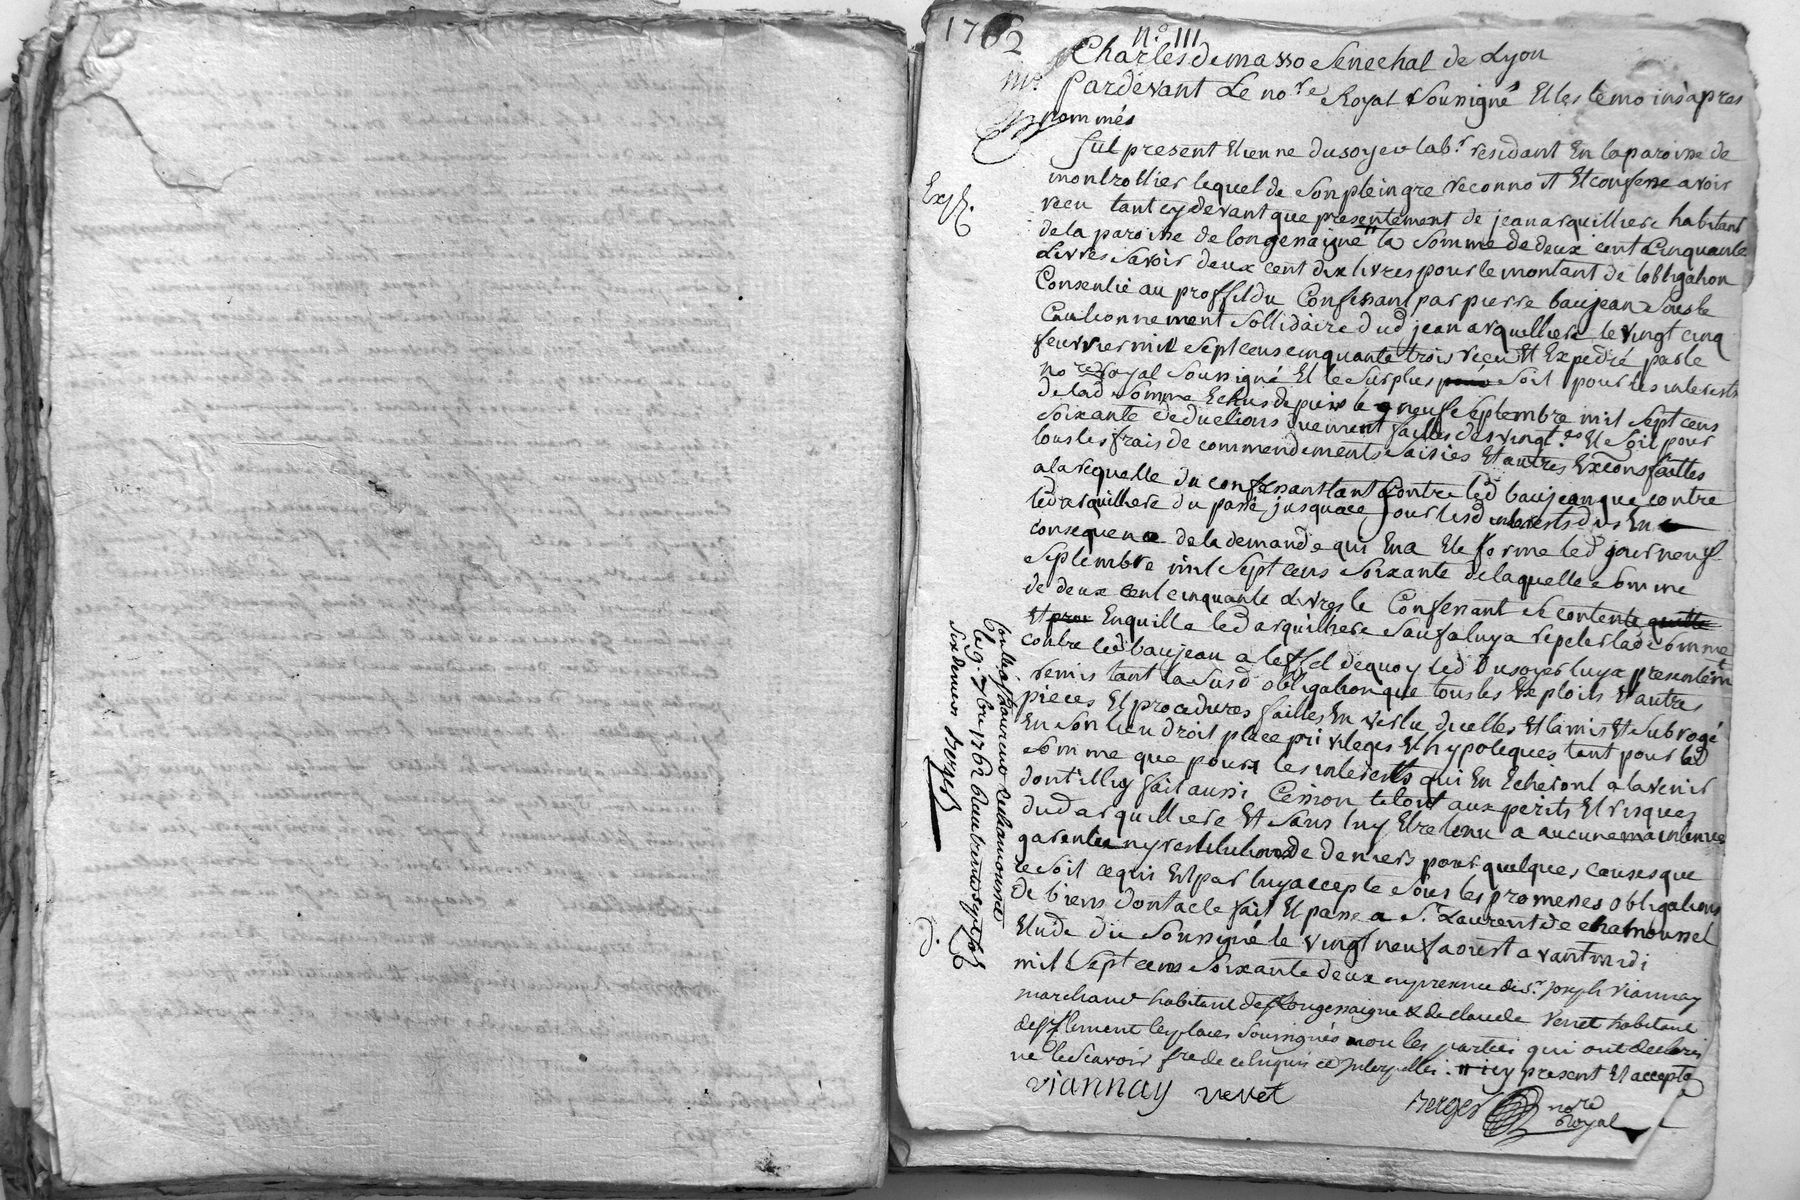 1762
n.° 111
Charles de masso Senechal de Lyon
Pardevant Le no.re Royal Soussigné Et les temoins apres
nommés
fut present Etienne dusoyer lab.r residant En la paroisse de
montrottier lequel de son plein gre reconnoit Et confesse avoir
receu tant cy devant que presentement de jean arquilliere habitant
de la paroisse de longessaigne # la Somme de deux cent Cinquante
Livres Savoir deux cent dix livres pour le montant de lobligation
Consentie au proffit du Confessant par pierre baujean Sous le
Cautionnement Sollidaire dud jean arquilliere le vingt cinq
feuvrier mil Sept cens cinquante trois receu Et Expedié par le
no.re Royal Soussigné Et le Surplus Soit pour les interests
de lad Somme Echus depuis le neuf Septembre mil Sept cens
Soixante deductions duement faittes des vingt.es Et Soit pour
tous les frais de commendements Saisies Et autres Exeons faittes
a la requette du confessant tant Contre led baujean que contre
led arquilliere du passé jusqua ce jour lesd interests dus En
consequence de la demande qui En a Ete formé led jour neuf
Septembre mil Sept cens Soixante de laquelle Somme
de deux cent cinquante Livres le Confessant Se contente quitte
Et pro Enquitta led arquilliere Sauf a luy a repeter lad Somme
contre led baujean a leffet dequoy led Dusoyer luy a presentem.t
remis tant la Susd obligation que tous les Exploits Et autres
pieces Et procedures faittes En vertu dicelles Et la mis Et Subrogé
En Son lieu Droit place privileges Et hypoteques tant pour lad
Somme que pour les interests qui En Echeront a lavenir
dont il luy fait aussi Cession le tout aux perils Et risques
dud arquilliere Et Sans luy Etre tenu a aucune maintenue
garentie ny restitution de deniers pour quelques causes que
ce Soit ce qui Est par luy accepté Sous les promesses obligations
de biens Dont acte fait Et passé a S.t Laurent de chamousset
Etude du Soussigné le vingt neuf aoust avant midi
mil Sept cens Soixante deux en presence de s.r joseph viannay
marchand habitant de Longessaigne & de claude venet habitant
de S.t Clement les places Soussignés non les parties qui ont declaré
ne le Scavoir faire de ce Enquis et Interpellés. # icy present Et acceptant
viannay venet Berger no.re Royal
Exp.
Conllé a St Laurens de chamousset
le 9. 7bre 1762 Recu treize sols
Six deniers Berger